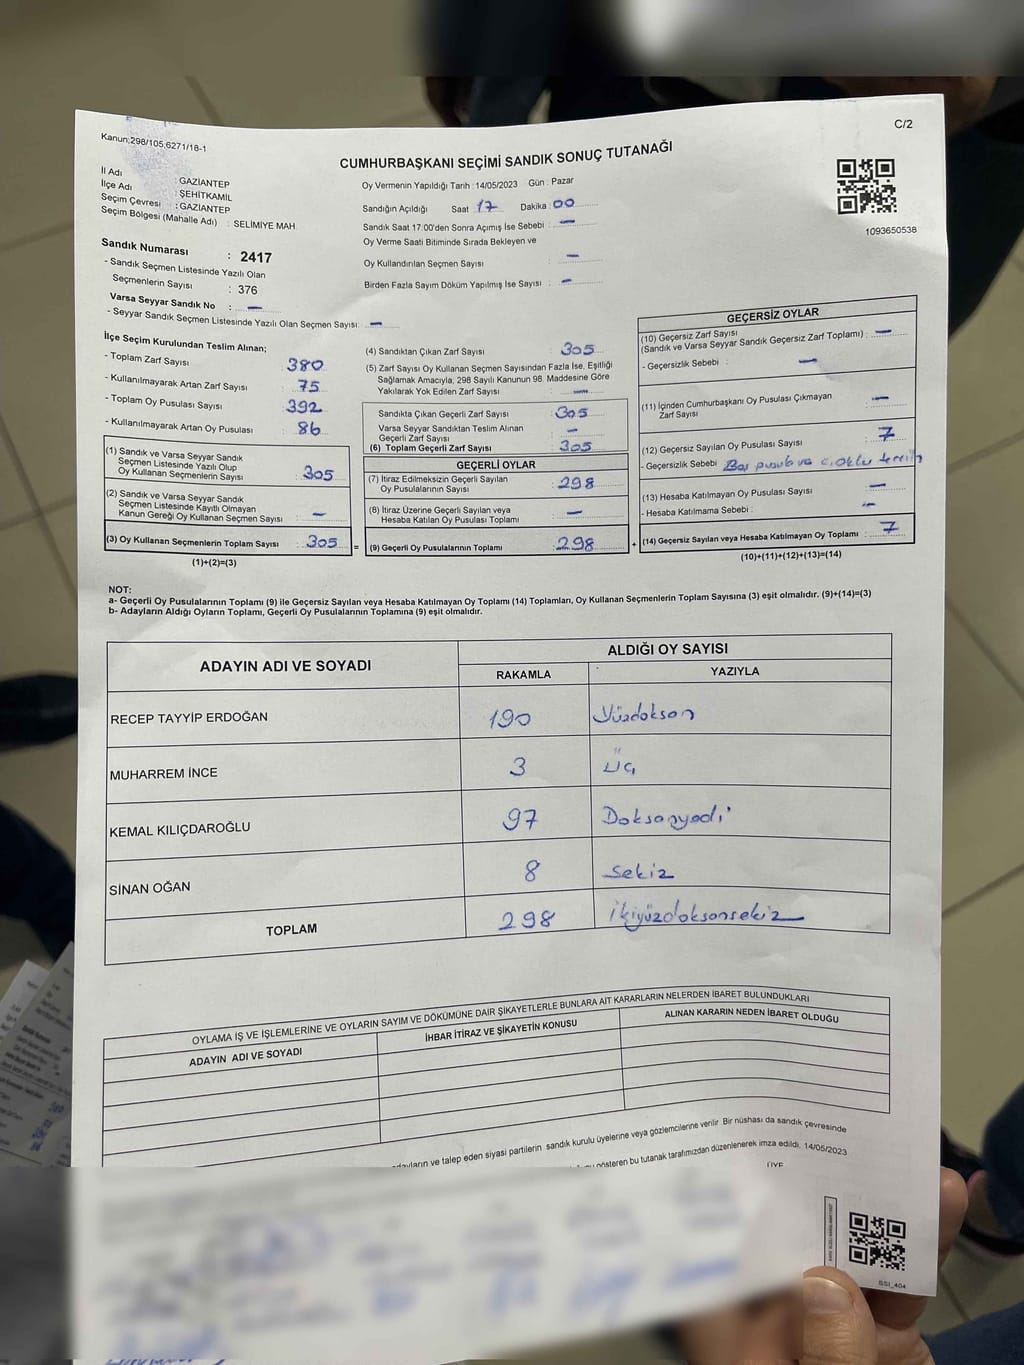 Kanun;298/105;6271/18-1
C/2
CUMHURBAŞKANI SEÇİMİ SANDIK SONUÇ TUTANAĞI
İl Adı : GAZİANTEP
İlçe Adı : ŞEHİTKAMİL
Seçim Çevresi : GAZİANTEP
Seçim Bölgesi (Mahalle Adı) : SELİMİYE MAH.
Oy Vermenin Yapıldığı Tarih : 14/05/2023 Gün : Pazar
Sandığın Açıldığı Saat 17 Dakika : 00
Sandık Saat 17.00'den Sonra Açımış İse Sebebi : —
Oy Verme Saati Bitiminde Sırada Bekleyen ve
Oy Kullandırılan Seçmen Sayısı : —
Birden Fazla Sayım Döküm Yapılmış İse Sayısı : —
1093650538
Sandık Numarası : 2417
- Sandık Seçmen Listesinde Yazılı Olan
Seçmenlerin Sayısı : 376
Varsa Seyyar Sandık No : —
- Seyyar Sandık Seçmen Listesinde Yazılı Olan Seçmen Sayısı: —
İlçe Seçim Kurulundan Teslim Alınan;
- Toplam Zarf Sayısı : 380
- Kullanılmayarak Artan Zarf Sayısı : 75
- Toplam Oy Pusulası Sayısı : 392
- Kullanılmayarak Artan Oy Pusulası : 86
(1) Sandık ve Varsa Seyyar Sandık
Seçmen Listesinde Yazılı Olup
Oy Kullanan Seçmenlerin Sayısı : 305
(2) Sandık ve Varsa Seyyar Sandık
Seçmen Listesinde Kayıtlı Olmayan
Kanun Gereği Oy Kullanan Seçmen Sayısı : —
(3) Oy Kullanan Seçmenlerin Toplam Sayısı : 305
(1)+(2)=(3)
(4) Sandıktan Çıkan Zarf Sayısı : 305
(5) Zarf Sayısı Oy Kullanan Seçmen Sayısından Fazla İse, Eşitliği
Sağlamak Amacıyla, 298 Sayılı Kanunun 98. Maddesine Göre
Yakılarak Yok Edilen Zarf Sayısı : —
Sandıkta Çıkan Geçerli Zarf Sayısı : 305
Varsa Seyyar Sandıktan Teslim Alınan
Geçerli Zarf Sayısı : —
(6) Toplam Geçerli Zarf Sayısı : 305
GEÇERLİ OYLAR
(7) İtiraz Edilmeksizin Geçerli Sayılan
Oy Pusulalarının Sayısı : 298
(8) İtiraz Üzerine Geçerli Sayılan veya
Hesaba Katılan Oy Pusulası Toplamı : —
= (9) Geçerli Oy Pusulalarının Toplamı : 298
GEÇERSİZ OYLAR
(10) Geçersiz Zarf Sayısı
(Sandık ve Varsa Seyyar Sandık Geçersiz Zarf Toplamı) : —
- Geçersizlik Sebebi : —
(11) İçinden Cumhurbaşkanı Oy Pusulası Çıkmayan
Zarf Sayısı : —
(12) Geçersiz Sayılan Oy Pusulası Sayısı : 7
- Geçersizlik Sebebi : Boş pusula ve
(13) Hesaba Katılmayan Oy Pusulası Sayısı : —
- Hesaba Katılmama Sebebi : —
+ (14) Geçersiz Sayılan veya Hesaba Katılmayan Oy Toplamı : 7
(10)+(11)+(12)+(13)=(14)
NOT:
a- Geçerli Oy Pusulalarının Toplamı (9) ile Geçersiz Sayılan veya Hesaba Katılmayan Oy Toplamı (14) Toplamları, Oy Kullanan Seçmenlerin Toplam Sayısına (3) eşit olmalıdır. (9)+(14)=(3)
b- Adayların Aldığı Oyların Toplamı, Geçerli Oy Pusulalarının Toplamına (9) eşit olmalıdır.
ADAYIN ADI VE SOYADI
ALDIĞI OY SAYISI
RAKAMLA YAZIYLA
RECEP TAYYİP ERDOĞAN 190 Yüzdoksan
MUHARREM İNCE 3 üç
KEMAL KILIÇDAROĞLU 97 Doksanyedi
SİNAN OĞAN 8 sekiz
TOPLAM 298 ikiyüzdoksansekiz
OYLAMA İŞ VE İŞLEMLERİNE VE OYLARIN SAYIM VE DÖKÜMÜNE DAİR ŞİKAYETLERLE BUNLARA AİT KARARLARIN NELERDEN İBARET BULUNDUKLARI
ADAYIN ADI VE SOYADI
İHBAR İTİRAZ VE ŞİKAYETİN KONUSU
ALINAN KARARIN NEDEN İBARET OLDUĞU
ve talep eden siyasi partilerin sandık kurulu üyelerine veya gözlemcilerine verilir. Bir nüshası da sandık çevresinde
gösteren bu tutanak tarafımızdan düzenlenerek imza edildi. 14/05/2023
ÜYE
SSI_404